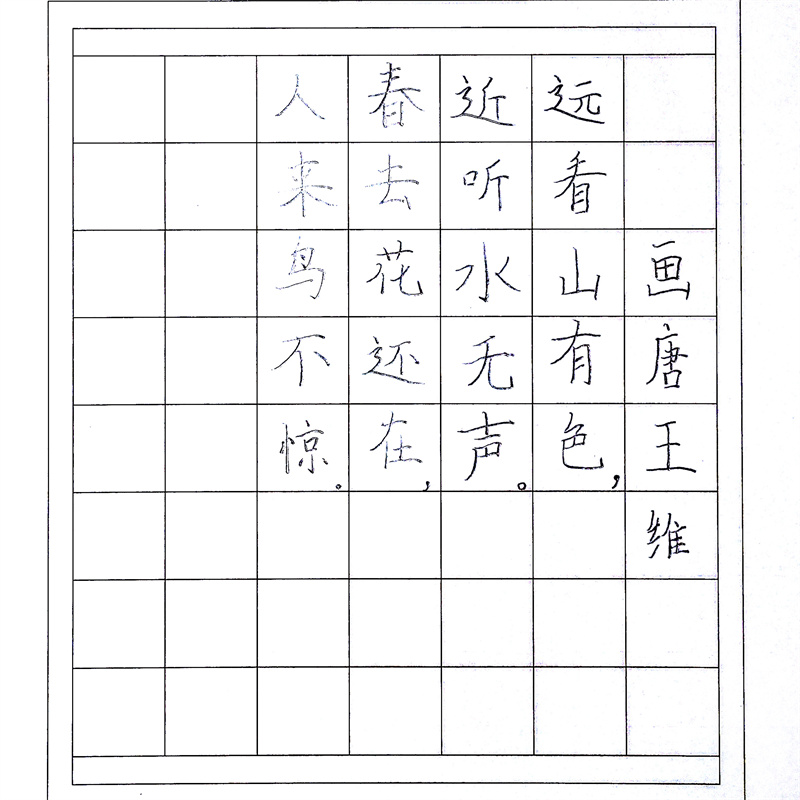 画唐王维
远看山有色，
近听水无声。
春去花还在，
人来鸟不惊。